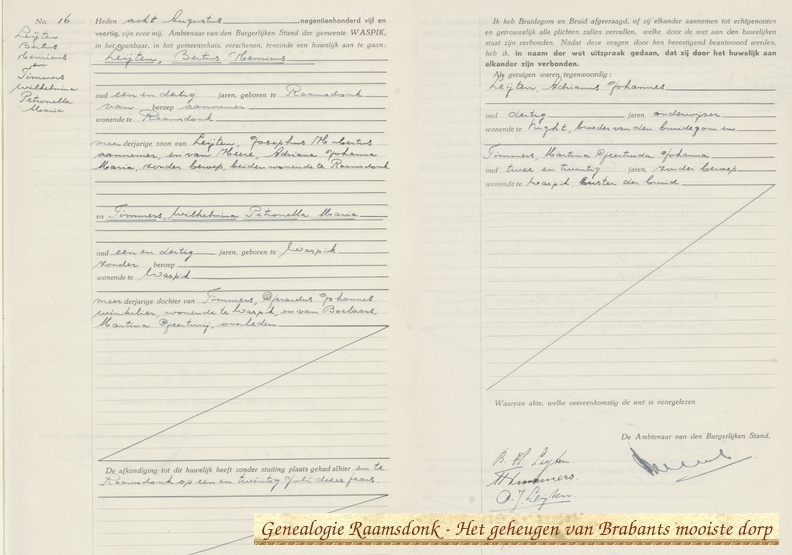 No. 16
Leijten
Bertus
Hemicus
en
Timmers
Wilhelmina
Petronella
Maria
Heden acht Augustus negentienhonderd vijf en
veertig, zijn voor mij, Ambtenaar van den Burgerlijken Stand der gemeente WASPIK,
in het openbaar, in het gemeentehuis, verschenen, teneinde een huwelijk aan te gaan:
Leijten, Bertus Hemicus
oud een en dertig jaren, geboren te Raamsdonk
van beroep aannemer
wonende te Raamsdonk
meerderjarige zoon van Leijten, Josephus Hubertus
aannemer, en van Heere, Adriana Johanna
Maria, zonder beroep, beiden wonende te Raamsdonk
en Timmers, Wilhelmina Petronella Maria
oud een en dertig jaren, geboren te Waspik
zonder beroep
wonende te Waspik
meerderjarige dochter van Timmers, Gerardus Johannes
winkelier, wonende te Waspik, en van Boelaars,
Martina Geertruij, overleden
De afkondiging tot dit huwelijk heeft zonder stuiting plaats gehad alhier en te
Raamsdonk op een en twintig Juli dezer jaars.
Ik heb Bruidegom en Bruid afgevraagd, of zij elkander aannemen tot echtgenooten
en getrouwelijk alle plichten zullen vervullen, welke door de wet aan den huwelijken
staat zijn verbonden. Nadat deze vragen door hen bevestigend beantwoord werden,
heb ik, in naam der wet uitspraak gedaan, dat zij door het huwelijk aan
elkander zijn verbonden.
Als getuigen waren tegenwoordig:
Leijten, Adrianus Johannes
oud dertig jaren, onderwijzer
wonende te Vught, broeder van den bruidegom en
Timmers, Martina Geertruda Johanna
oud twee en twintig jaren, zonder beroep
wonende te Waspik zuster der bruid
Waarvan akte, welke overeenkomstig de wet is voorgelezen.
De Ambtenaar van den Burgerlijken Stand,
B. H. Leijten.
Timmers
A. J. Leijten.
Genealogie Raamsdonk - Het geheugen van Brabants mooiste dorp